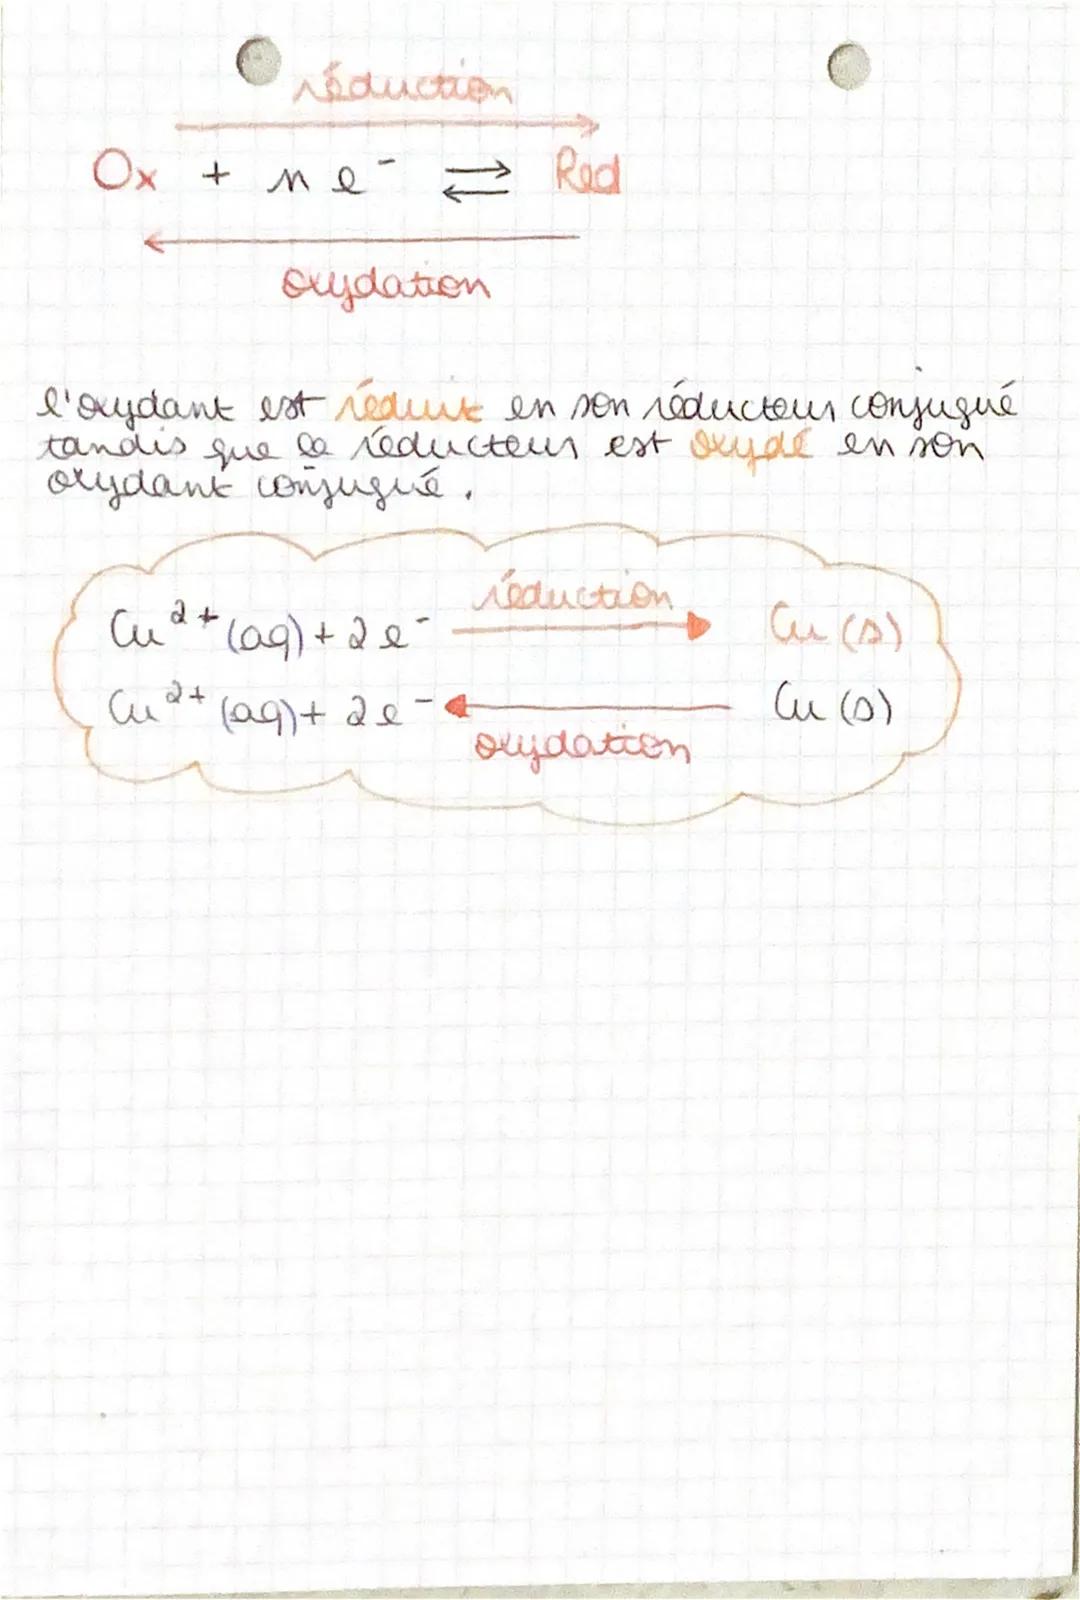 réduction
Ox + n e⁻ ⇄ Red
oxydation
l'oxydant est réduit en son réducteur conjugué
tandis que le réducteur est oxydé en son
oxydant conjugué.
réduction
Cu²⁺ (aq) + 2 e⁻ → Cu (s)
Cu²⁺ (aq) + 2 e⁻ ← Cu (s)
oxydation